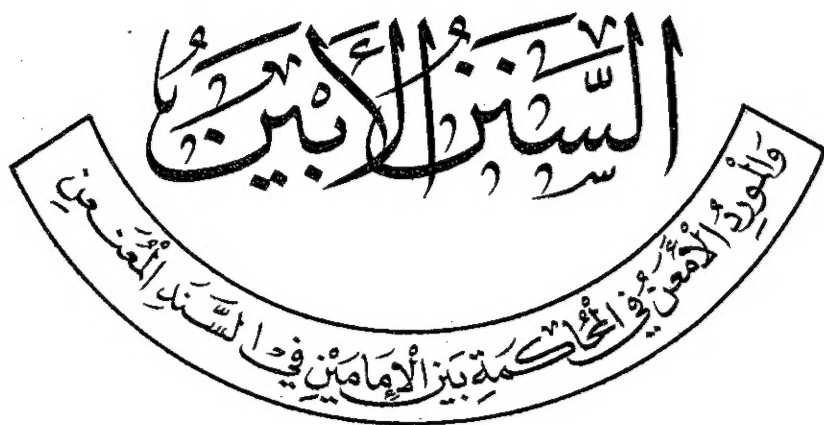 السَّنَنُ الأَبْيَنُ
وَالْمَوْرِدُ الْأَمْعَنُ فِي الْمُحَاكَمَةِ بَيْنَ الْإِمَامَيْنِ فِي السَّنَدِ الْمُعَنْعَنِ